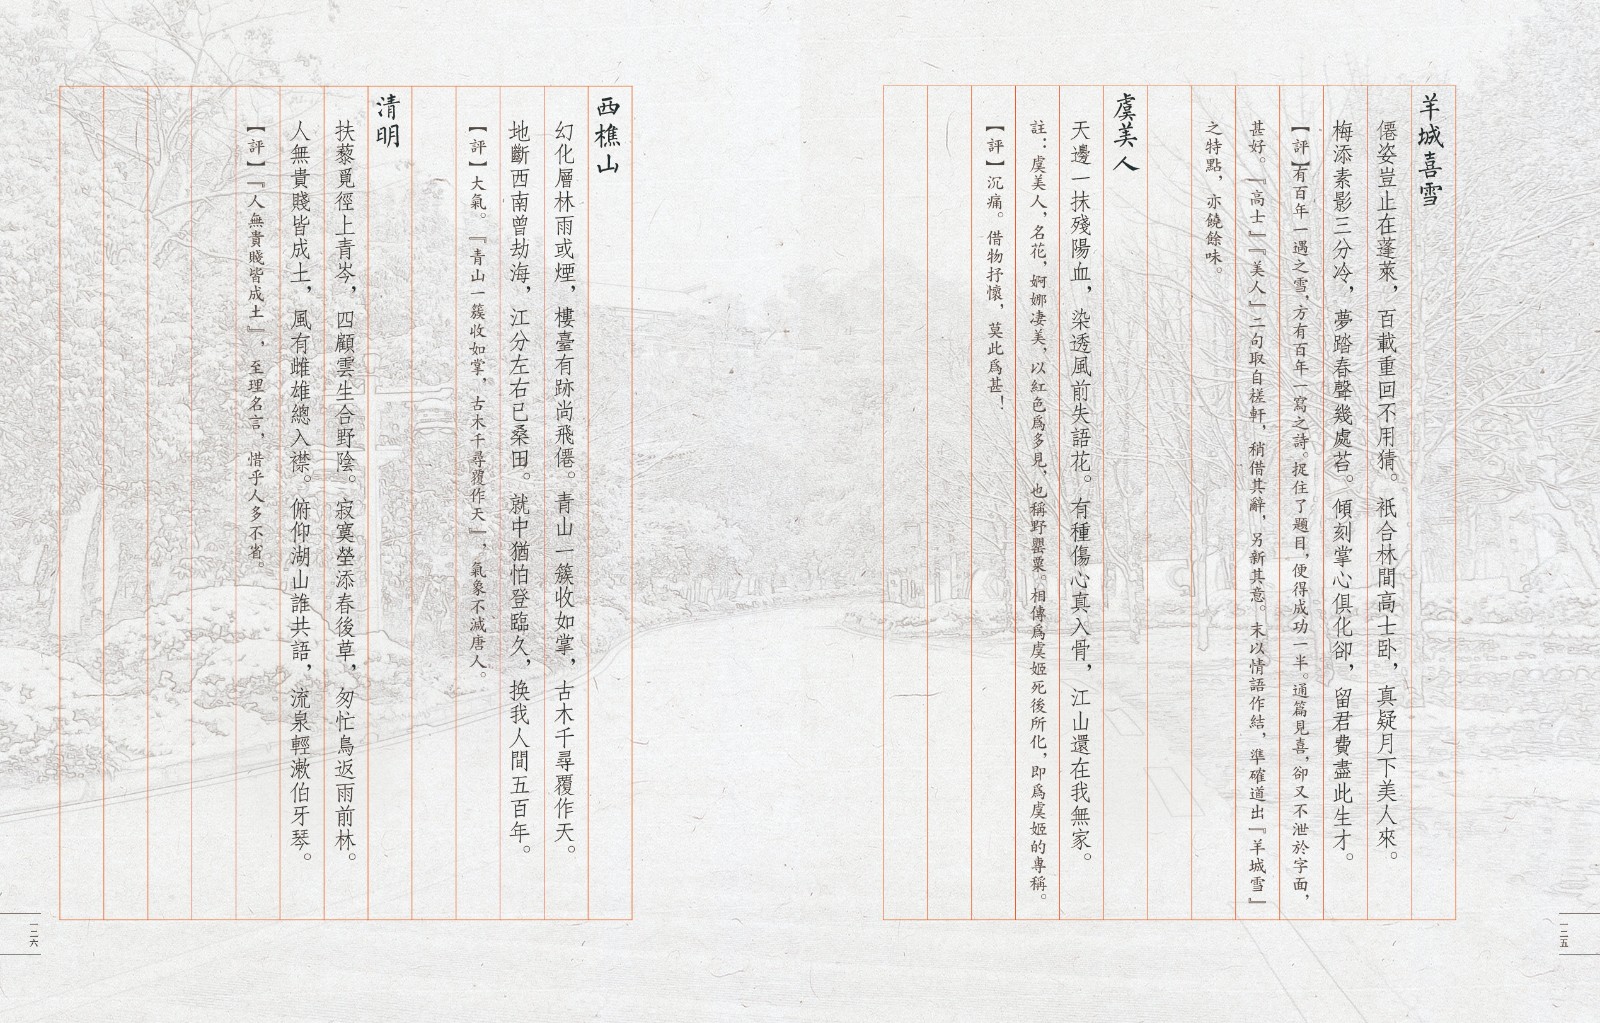 羊城喜雪
僊姿豈止在蓬萊，百載重回不用猜。衹合林間高士卧，真疑月下美人來。
梅添素影三分冷，夢踏春聲幾處苔。傾刻掌心俱化卻，留君費盡此生才。
【評】有百年一遇之雪，方有百年一寫之詩。捉住了題目，便得成功一半。通篇見喜，卻又不泄於字面，
甚好。『高士』『美人』二句取自槎軒，稍借其辭，另新其意。末以情語作結，準確道出『羊城雪』
之特點，亦饒餘味。
虞美人
天邊一抹殘陽血，染透風前失語花。有種傷心真入骨，江山還在我無家。
註：虞美人，名花，婀娜凄美，以紅色爲多見，也稱野罌粟。相傳爲虞姬死後所化，即爲虞姬的專稱。
【評】沉痛。借物抒懷，莫此爲甚！
一二五
西樵山
幻化層林雨或煙，樓臺有跡尚飛僊。青山一簇收如掌，古木千尋覆作天。
地斷西南曾劫海，江分左右已桑田。就中猶怕登臨久，换我人間五百年。
【評】大氣。『青山一簇收如掌，古木千尋覆作天』，氣象不減唐人。
清明
扶藜覓徑上青岑，四顧雲生合野陰。寂寞塋添春後草，匆忙鳥返雨前林。
人無貴賤皆成土，風有雌雄總入襟。俯仰湖山誰共語，流泉輕漱伯牙琴。
【評】『人無貴賤皆成土』，至理名言，惜乎人多不省。
一二六